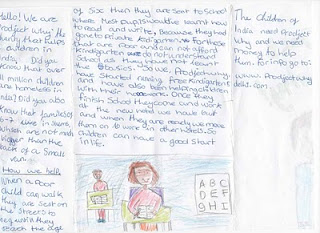 Hello! We are
Prodject why! the
charity that helps
children in
India! Did you
know that over
11 million children
are homeless in
India! Did you also
know that families of
6-7 live in slums,
which are not much
bigger than the
back of a small
van.
How we help
When a poor
child can walk
they are sent on
the streets to
beg until they
reach the age
of six then they are sent to School
where most pupils would've learnt how
to read and write, because they had
gone to private kindgarten. For those
that are poor and can not afford
kindgarten we do not understand
School as they have not learnt
the basics. So we, Prodject why
have started running free kindgarten
and have also been helping children
with their Once they
finish School they come and work
in the new hotel we have built
and when they are ready we move
them on to work in other hotels. So
children can have a good start
in life.
The Children of
India need Prodject
why and we need
money to help
them. For info go to:
www. Prodject why
delhi. com.
A B C
D E F
G H I